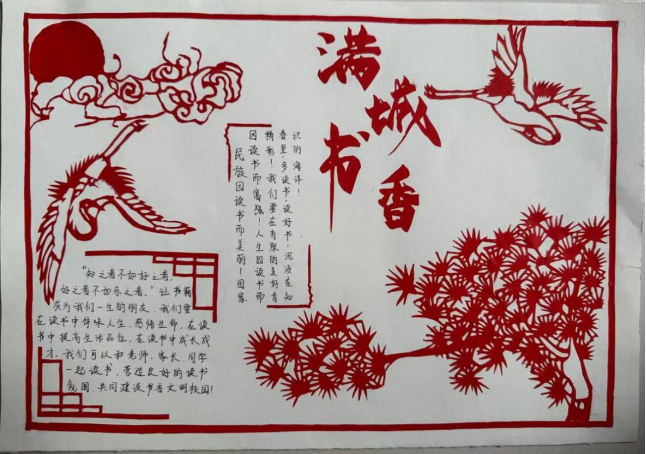 满城书香
民族因读书而美丽!国家
因读书而富强!人生因读书而
精彩!我们要在有限的美好青
春里,多读书,读好书,沉浸在知
识的海洋!
“知之者不如好之者,
好之者不如乐之者。”让书籍
成为我们一生的朋友,我们要
在读书中体味人生,感悟生命,在读
书中提高生活品位,在读书中成长成
才,我们可以和老师、家长、同学
一起读书,营造良好的读书
氛围,共同建设书香文明校园!